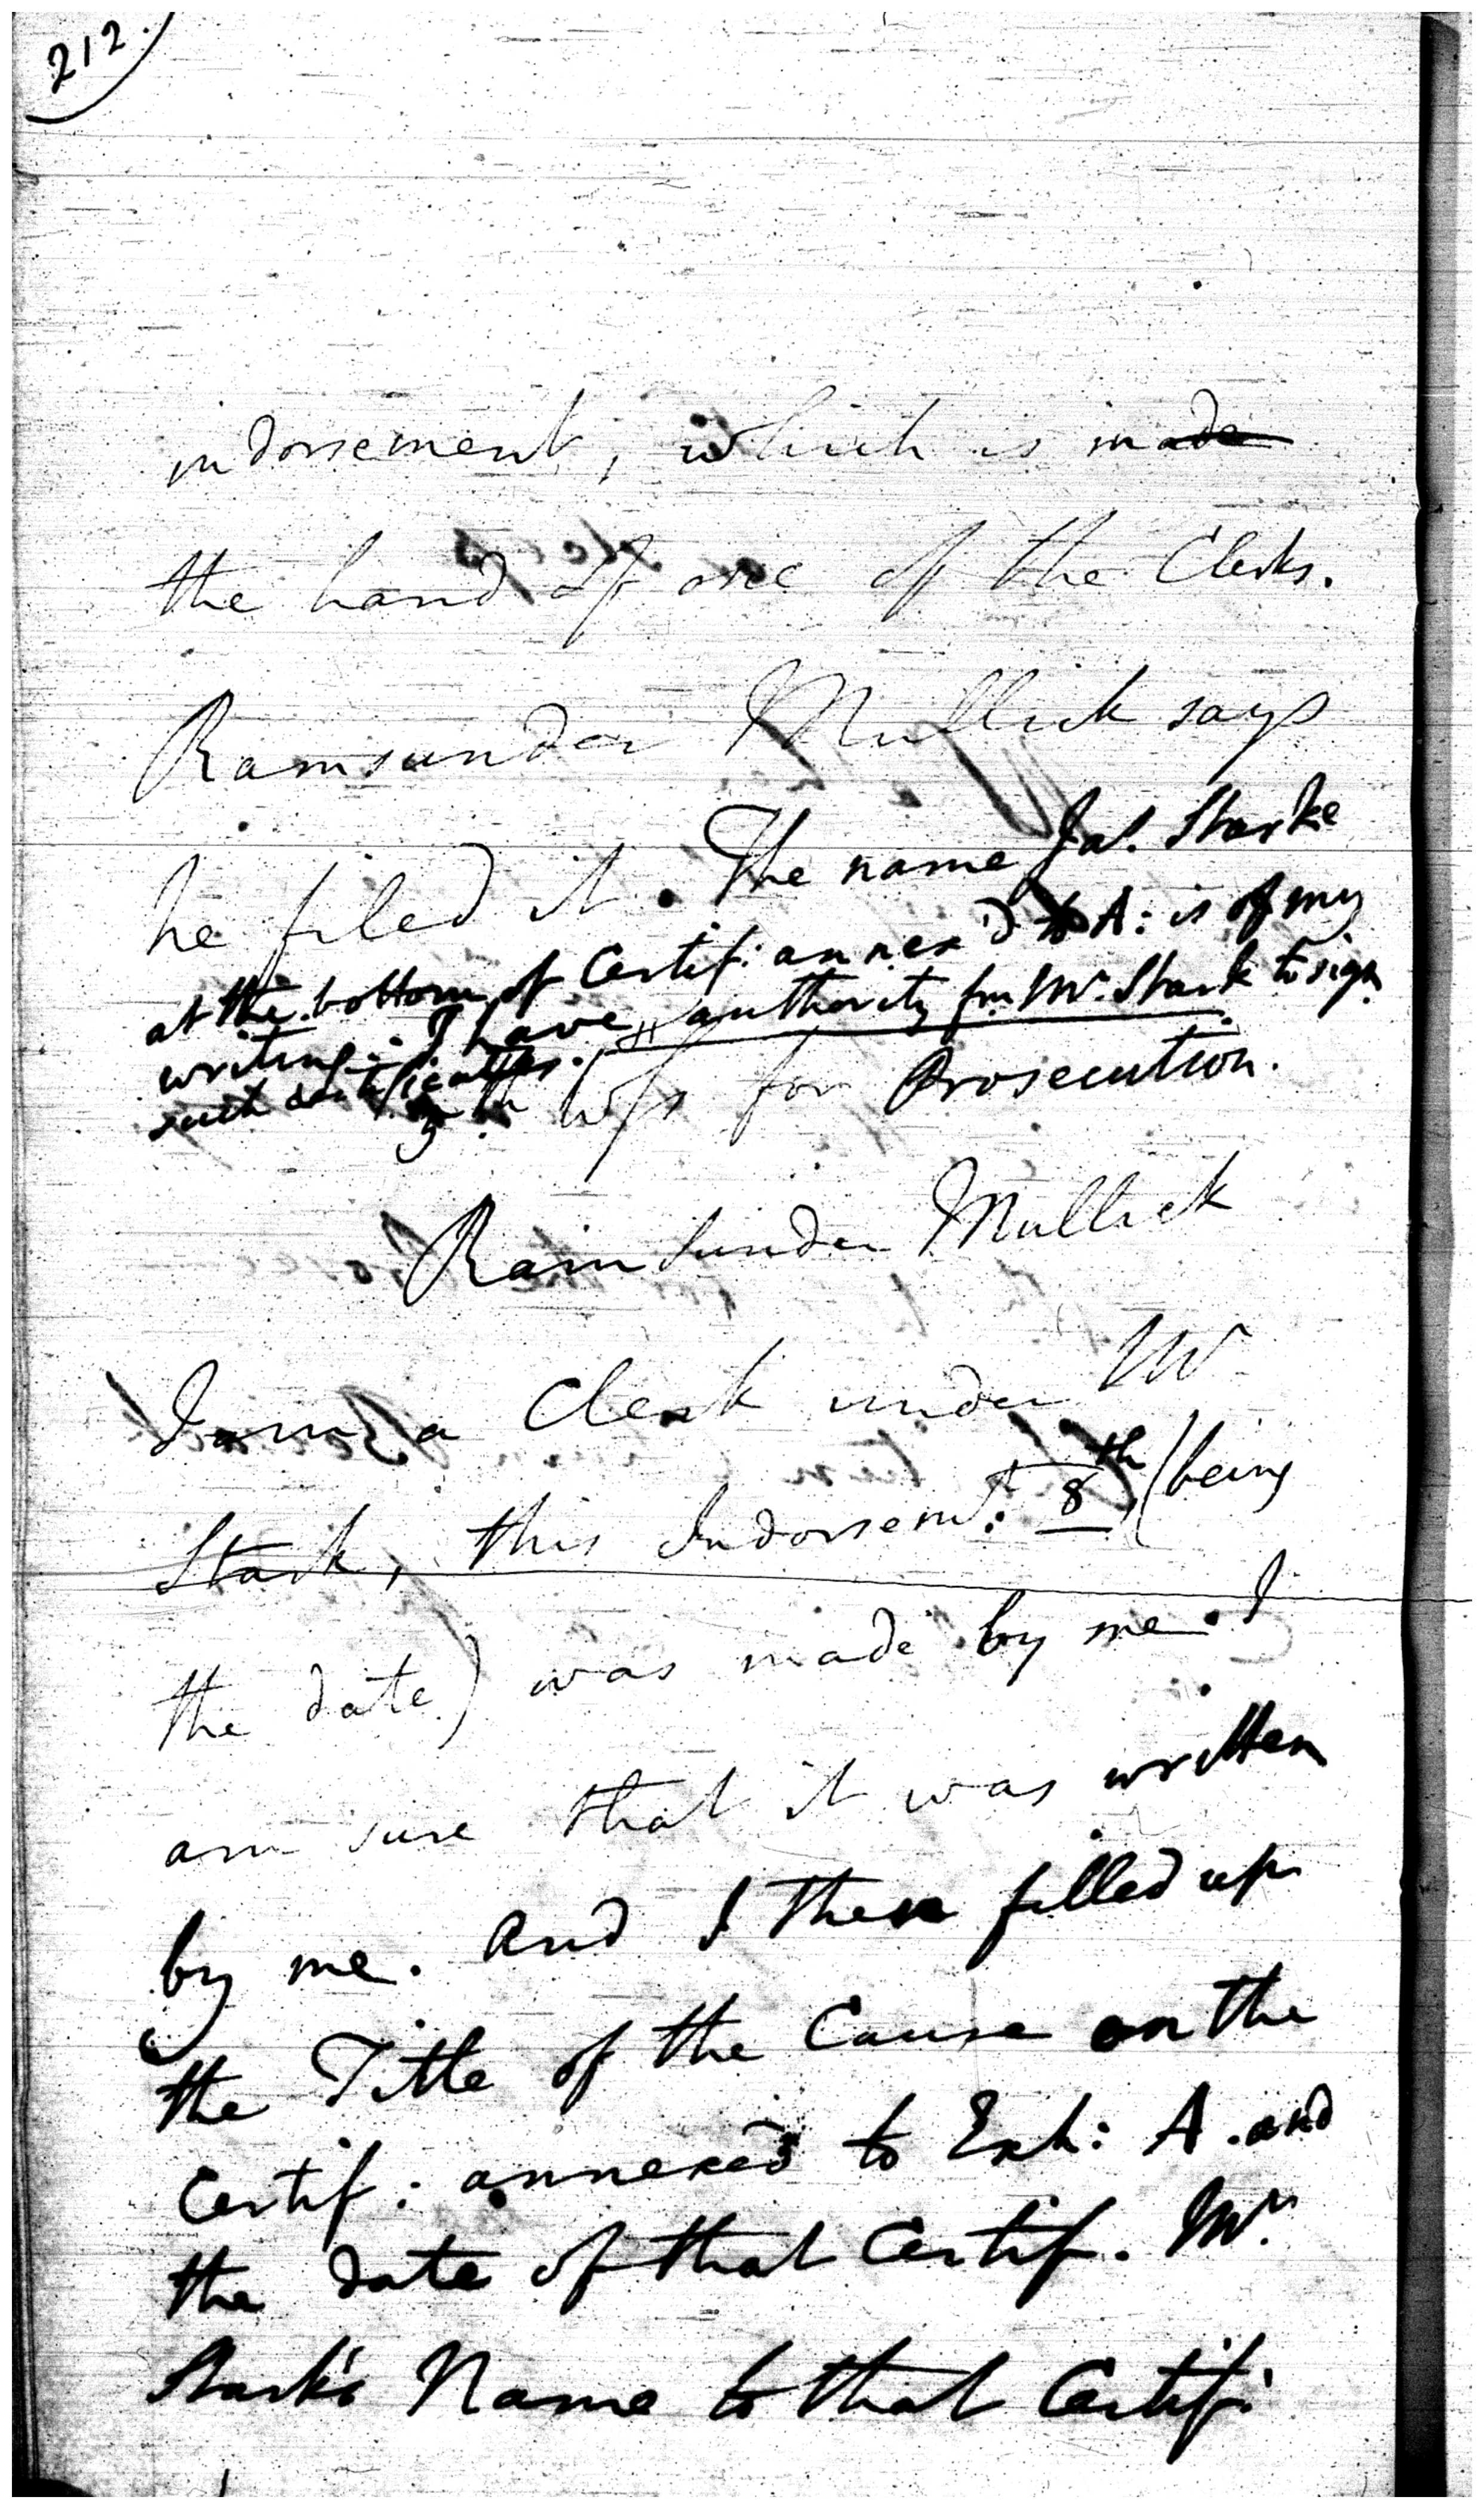 212.
indorsement, which is in ade
the hand of one of the Clerks.
Ramsunder Mullick says
he filed it. The name Jas. Starke
at the bottom of Certif: annex'd to A: is of my
writing. I have authority fm Mr. Stark to sign
such certificates.
5th Wss for Prosecution.
Ramsunder Mullick
I am a Clerk under Mr
Stark, this Indorsemt. 8th (being
the date) was made by me. I
am sure that it was written
by me. And I then filled up
the Title of the Cause on the
Certif: annexed to Exh: A. and
the date of that Certif. Mr.
Stark's Name to that Certif: